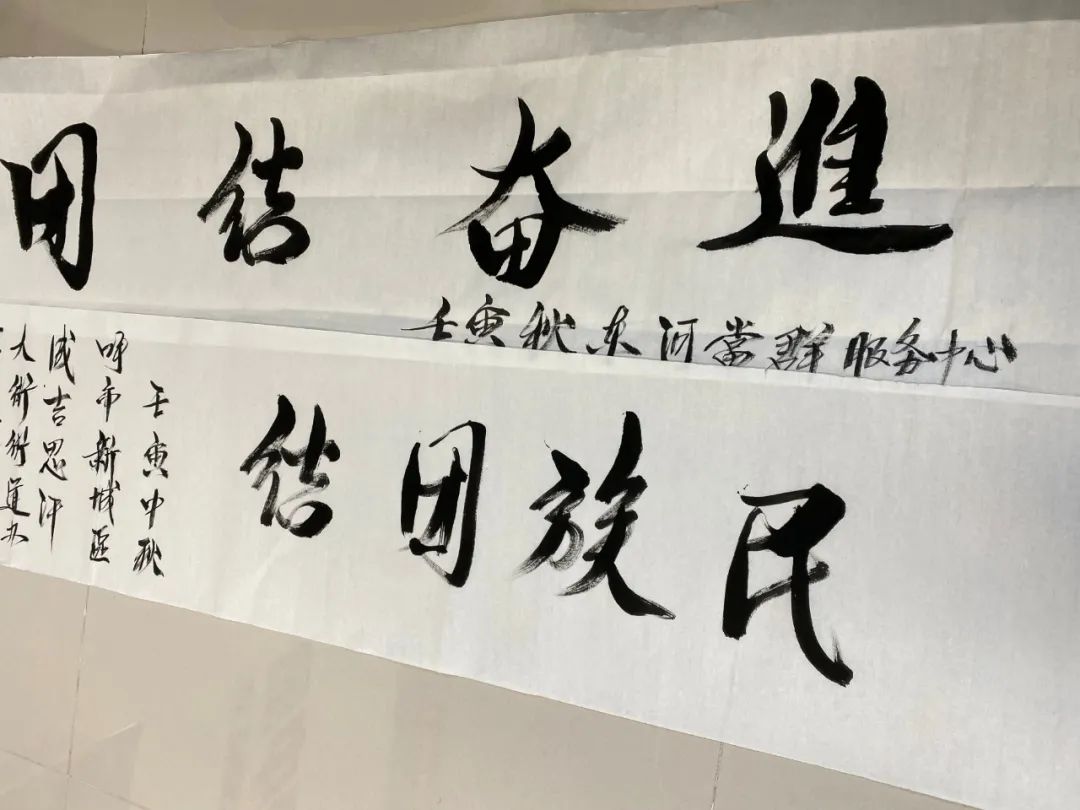 团结奋進
壬寅秋东河党群服务中心
民族团结
壬寅中秋
呼市新城区
成吉思汗
大街街道办